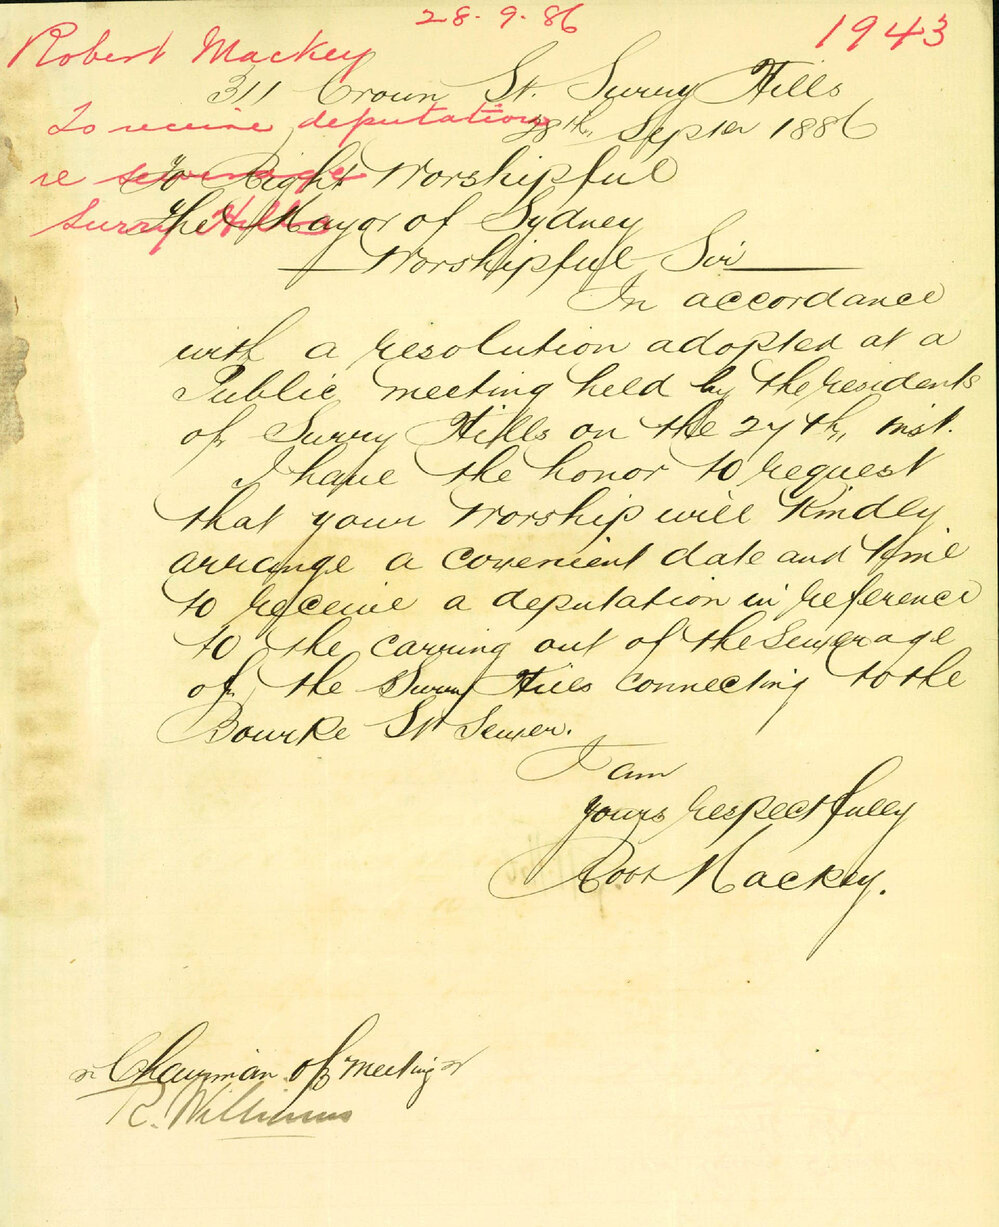 28. 9. 86
1943
Robert Mackey
311 Crown St. Surry Hills
To receive deputation
28th, Septer 1886
re sewerage
Surry Hills
To Right Worshipful
The Mayor of Sydney
Worshipful Sir
In accordance
with a resolution adopted at a
Public meeting held by the residents
of Surry Hills on the 27th, inst.
I have the honor to request
that your Worship will Kindly
arrange a covenient date and time
to receive a deputation in reference
to the carring out of the Sewerage
of the Surry Hills connecting to the
Bourke St Sewer.
I am
yours respectfully
Robt Mackey.
Chairman of meeting
R. Williams